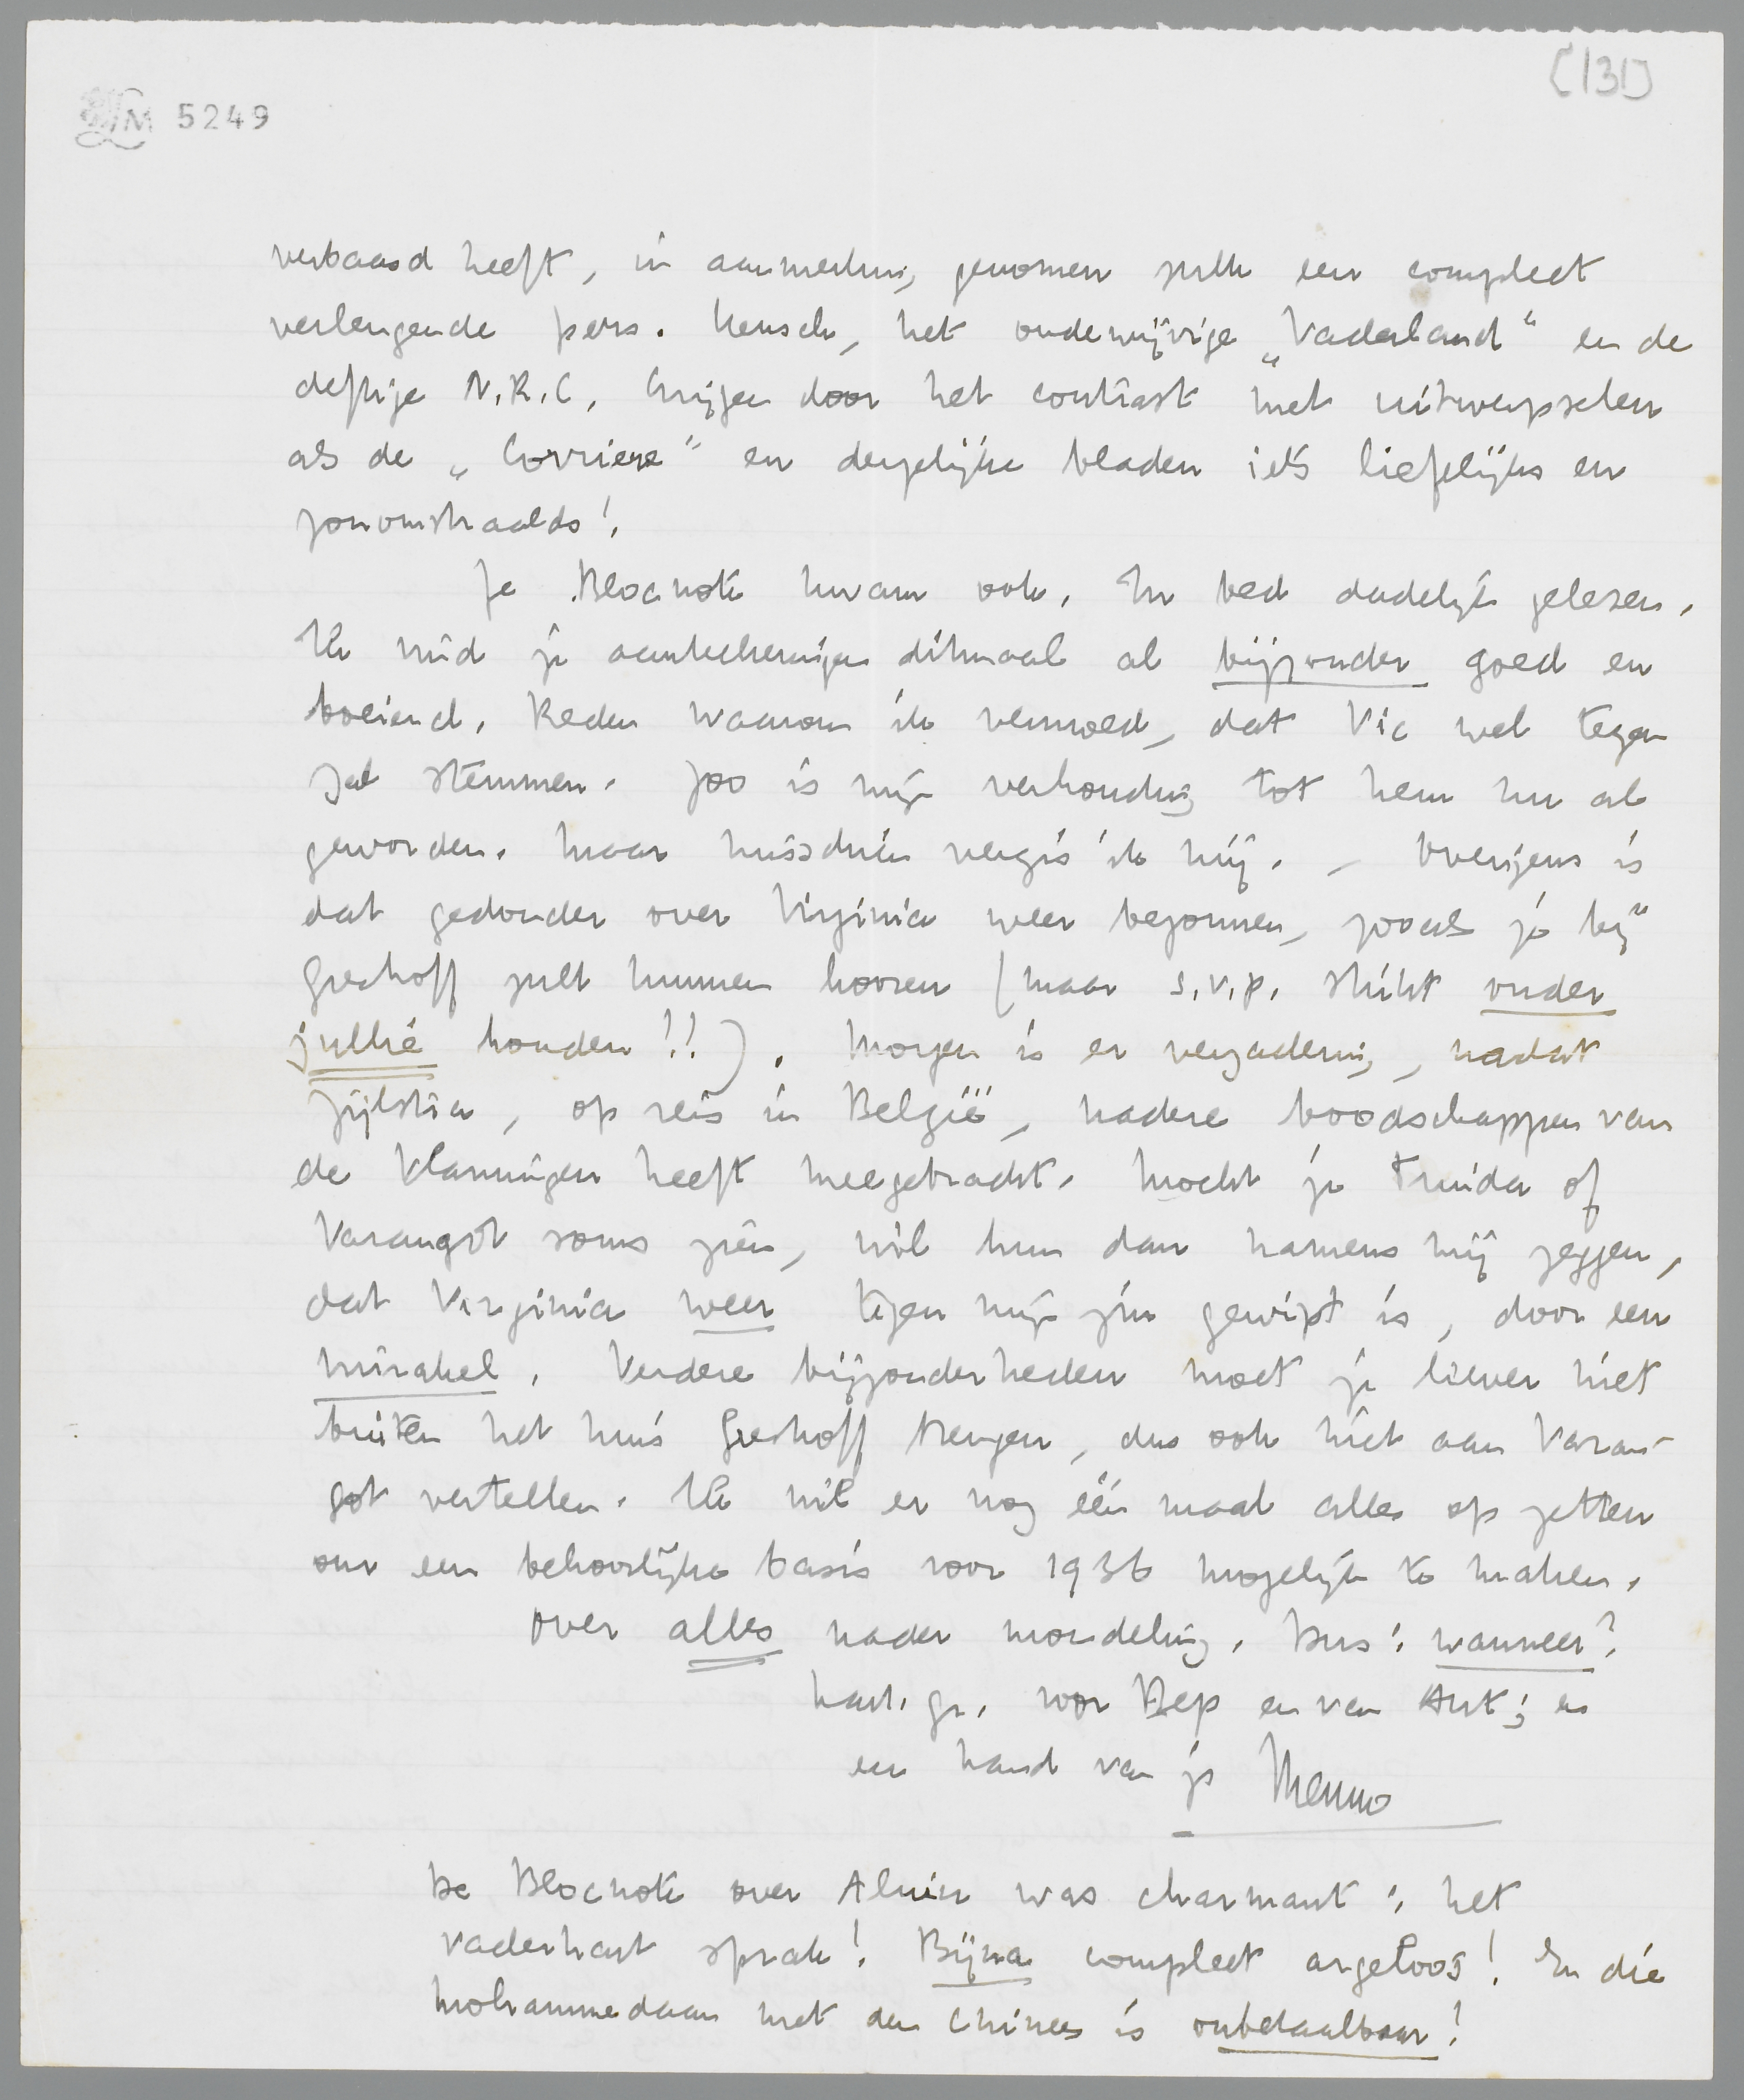 [131]
LM 5249
verbaasd heeft, in aanmerking genomen zulk een compleet
verleugende pers. Heusch, het oudewijvige „Vaderland" en de
deftige N.R.C. krijgen door het contrast met uitwerpselen
als de „Corriere" en dergelijke bladen iets liefelijks en
zonomstraalds!
Je Blocnote kwam ook. In bed dadelijk gelezen.
Ik vind je aanteekeningen ditmaal al bijzonder goed en
boeiend. Reden waarom ik vermoed, dat Vic wel tegen
zal stemmen. Zoo is mijn verhouding tot hem nu al
geworden. Maar misschien vergis ik mij. – Overigens is
dat gedonder over Virginia weer begonnen, zooals je bij
Greshoff zult kunnen hooren (maar s.v.p. strikt onder
jullie houden!!). Morgen is er vergadering, nadat
Zijlstra, op reis in België, nadere boodschappen van
de Vlamingen heeft meegebracht. Mocht je Truida of
Varangot soms zien, wil hun dan namens mij zeggen,
dat Virginia weer tegen mijn zin gewipt is, door een
mirakel. Verdere bijzonderheden moet je liever niet
buiten het huis Greshoff brengen, dus ook niet aan Varan-
got vertellen. Ik wil er nog één maal alles op zetten
om een behoorlijke basis voor 1936 mogelijk te maken.
Over alles nader mondeling. Dus: wanneer?
hart. gr. voor Bep en van Ant; en
een hand van je Menno
De Blocnote over Alwin was charmant; het
vaderhart sprak! Bijna compleet argeloos! En die
mohammedaan met den Chinees is onbetaalbaar!